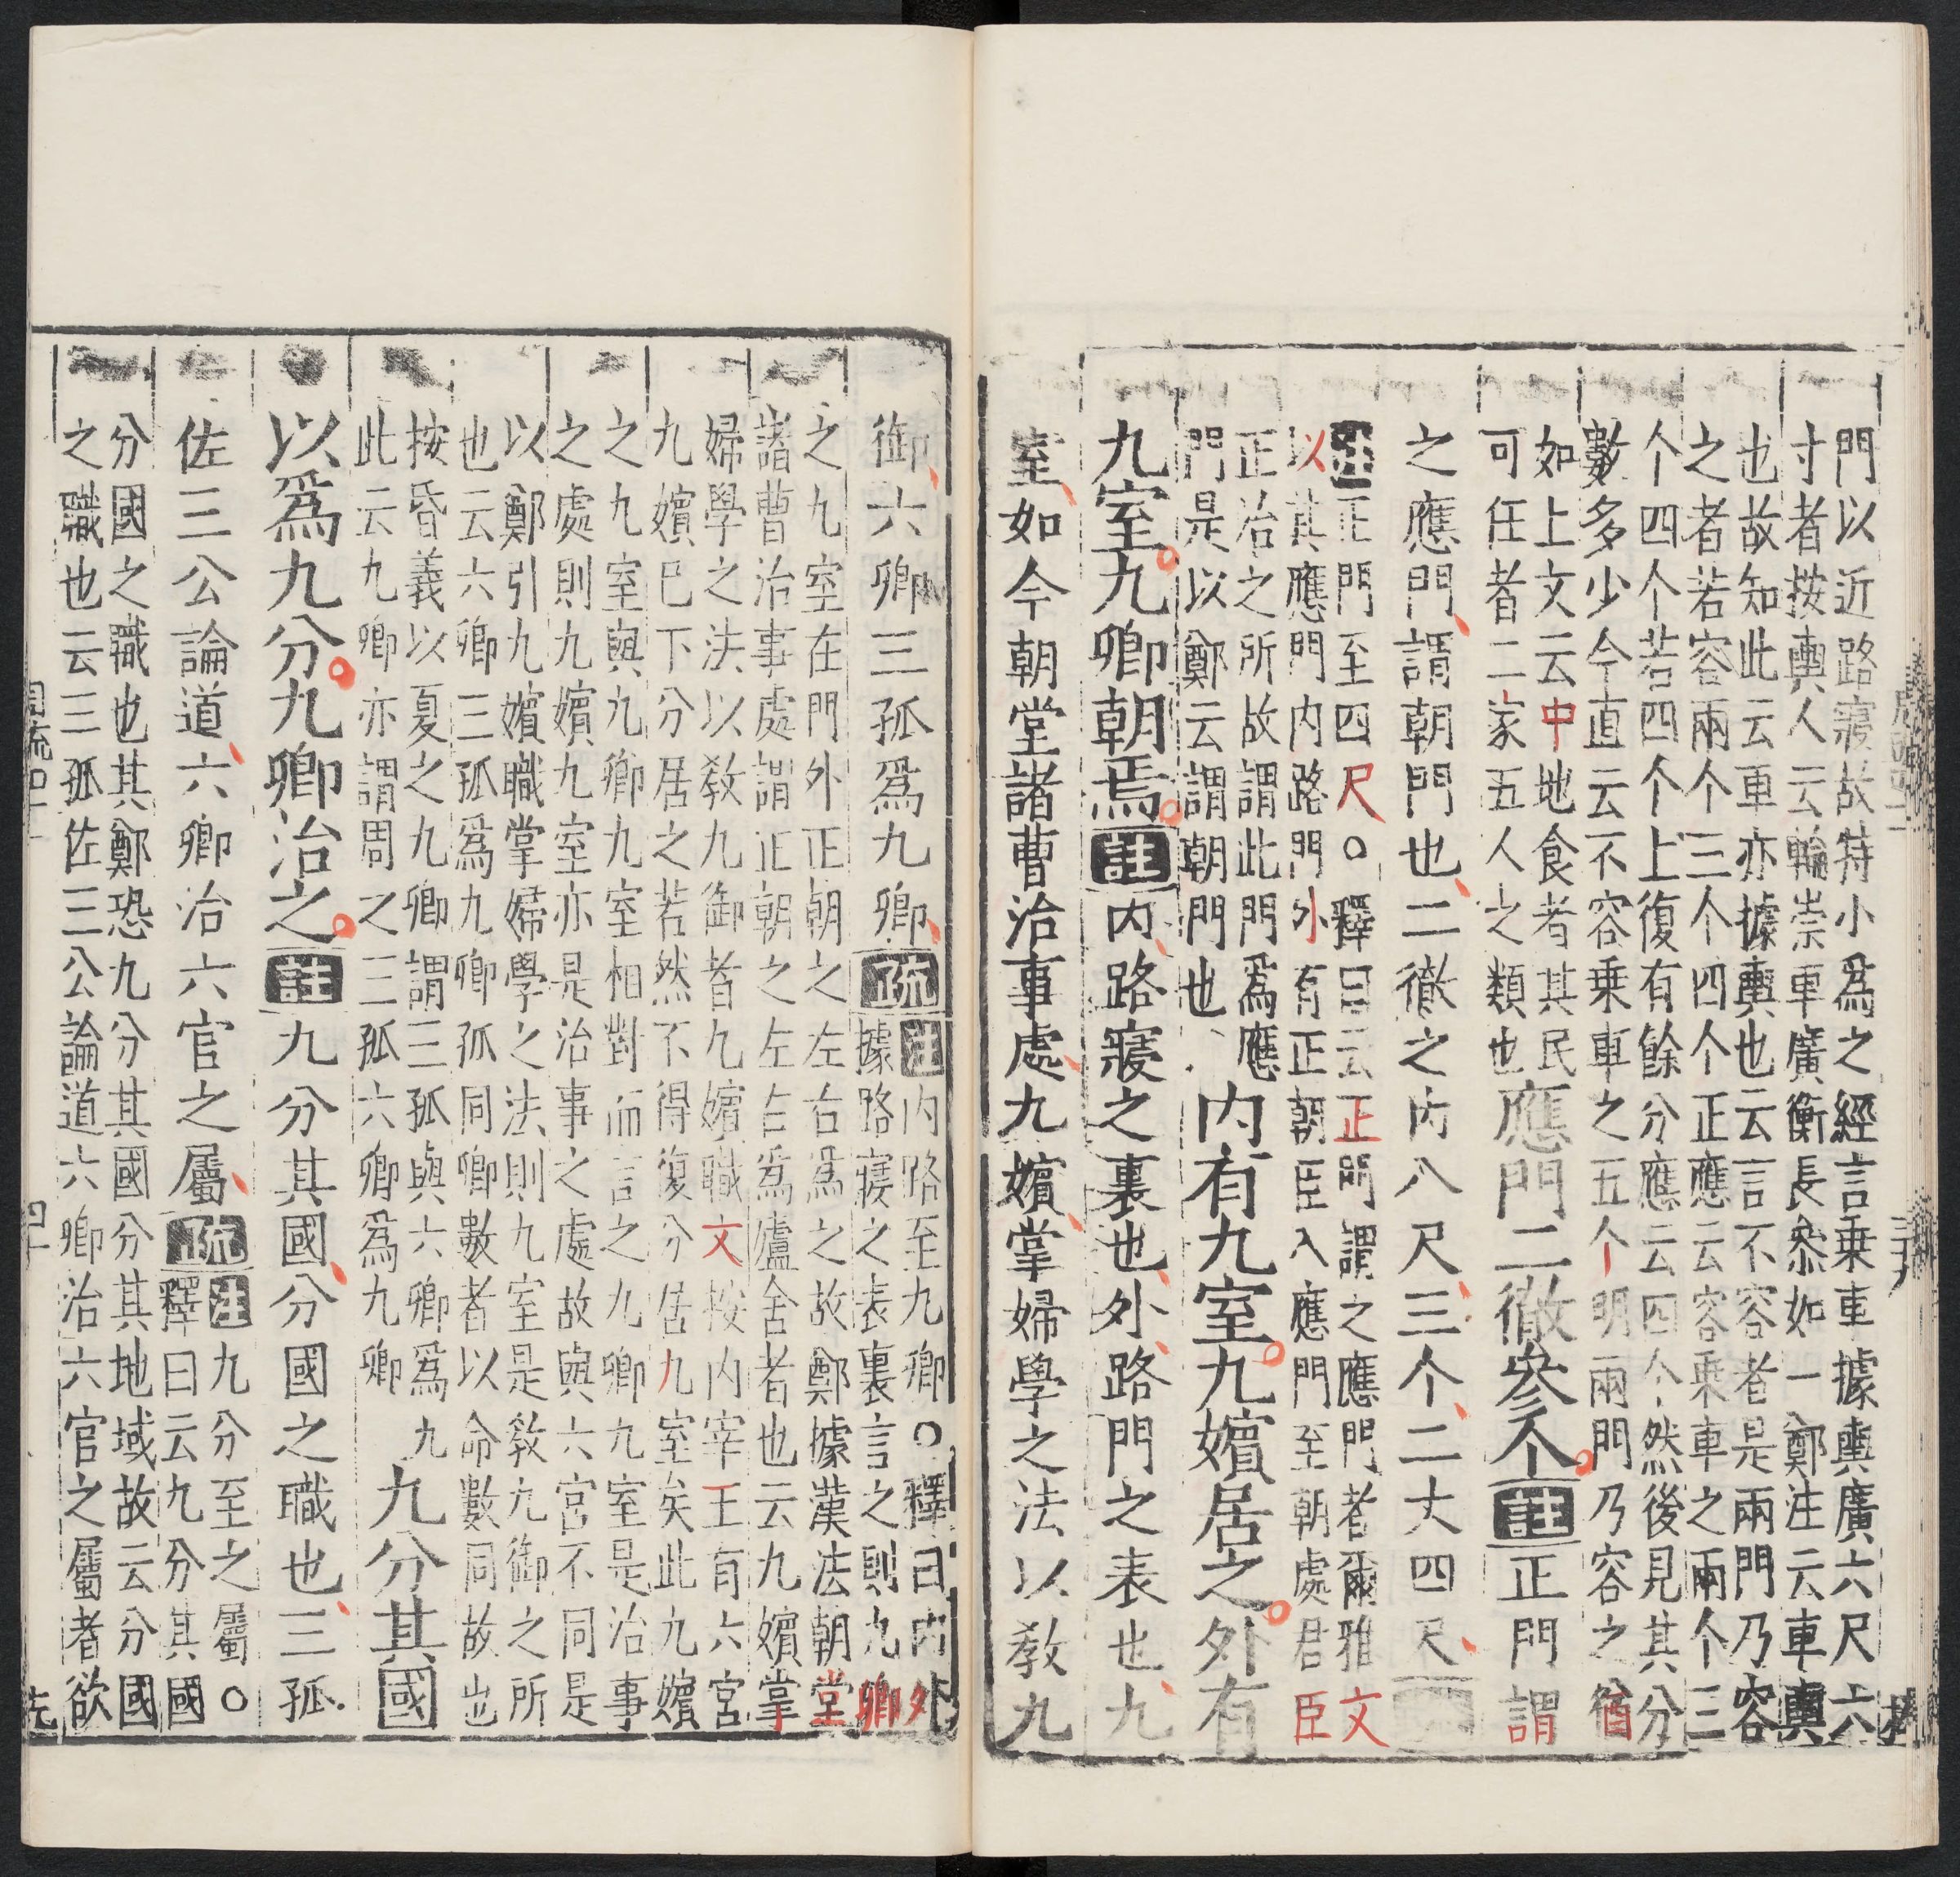 門以近路寢故特小爲之經言乗車據輿廣六尺六
寸者按輿人云輪崇車廣衡長叅如一鄭注云車輿
也故知此云車亦據輿也云言不容者是兩門乃容
之者若容兩个三个四个正應云容乗車之兩个三
个四个若四个上復有餘分應云四个然後見其分
數多少今直云不容乗車之五个明兩門乃容之猶
如上文云中地食者其民
可任者二家五人之類也
應門二徹參个註正門謂
之應門謂朝門也二徹之内八尺三个二丈四尺
正門至四尺○釋曰云正門謂之應門者爾雅文
以其應門内路門外有正朝臣入應門至朝處君臣
正治之所故謂此門爲應
門是以鄭云謂朝門也
内有九室九嬪居之外有
九室九卿朝焉註内路寢之裏也外路門之表也九
室如今朝堂諸曹治事處九嬪掌婦學之法以教九
御六卿三孤爲九卿疏
注内路至九卿○釋曰内外
據路寢之表裏言之則九卿
之九室在門外正朝之左右爲之故鄭據漢法朝堂
諸曹治事處謂正朝之左右爲廬舍者也云九嬪掌
婦學之法以教九御者九嬪職文按内宰王有六宮
九嬪已下分居之若然不得復分居九室矣此九嬪
之九室與九卿九室相對而言之九卿九室是治事
之處則九嬪九室亦是治事之處故與六宮不同是
以鄭引九嬪職掌婦學之法則九室是教九御之所
也云六卿三孤爲九卿孤同卿數者以命數同故也
按昏義以夏之九卿謂三孤與六卿爲九
此云九卿亦謂周之三孤六卿爲九卿
九分其國
以爲九分九卿治之註九分其國分國之職也三孤
佐三公論道六卿治六官之屬疏
注九分至之屬○
釋曰云九分其國
分國之職也其鄭恐九分其國分其地域故云分國
之職也云三孤佐三公論道六卿治六官之屬者欲